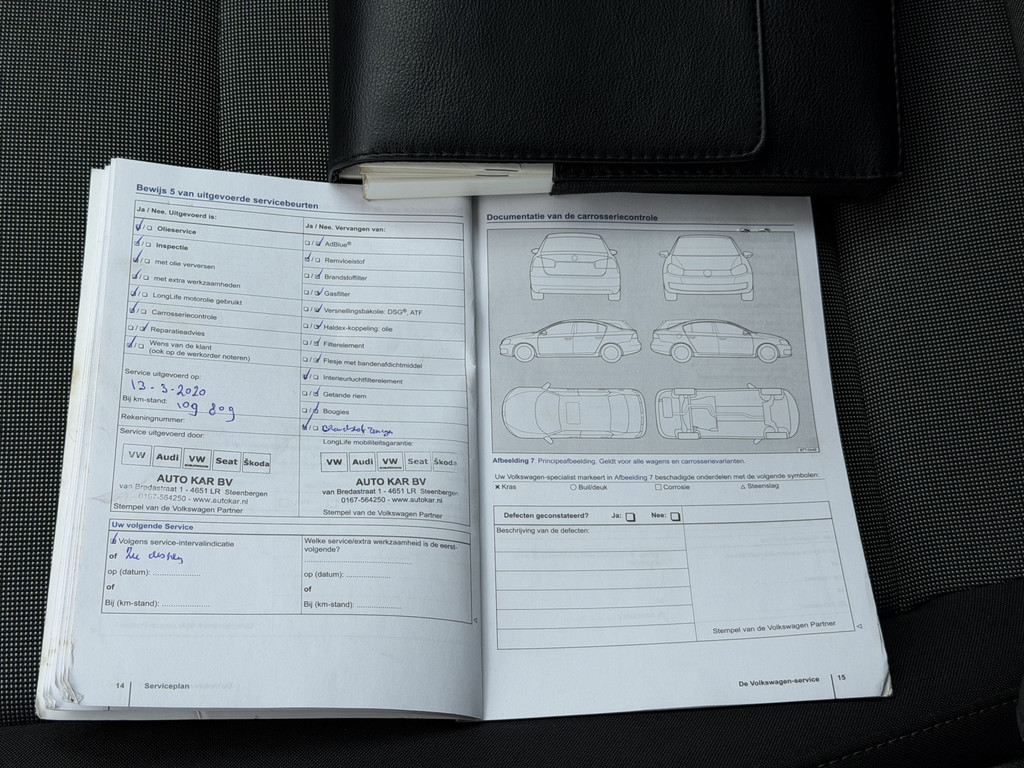 Bewijs 5 van uitgevoerde servicebeurten
Ja / Nee. Uitgevoerd is:
Olieservice
Inspectie
met olie verversen
met extra werkzaamheden
LongLife motorolie gebruikt
Carrosseriecontrole
Reparatieadvies
Wens van de klant
(ook op de werkorder noteren)
Service uitgevoerd op:
13-3-2020
Bij km-stand: 109 809
Rekeningnummer:
Service uitgevoerd door:
VW Audi VW Seat Škoda
AUTO KAR BV
van Bredastraat 1 - 4651 LR Steenbergen
0167-564250 - www.autokar.nl
Stempel van de Volkswagen Partner
Ja / Nee. Vervangen van:
AdBlue®
Remvloeistof
Brandstoffilter
Gasfilter
Versnellingsbakolie: DSG®, ATF
Haldex-koppeling: olie
Filterelement
Flesje met bandenafdichtmiddel
Interieurluchtfilterelement
Getande riem
Bougies
LongLife mobiliteitsgarantie:
VW Audi VW Seat Škoda
AUTO KAR BV
van Bredastraat 1 - 4651 LR Steenbergen
0167-564250 - www.autokar.nl
Stempel van de Volkswagen Partner
Uw volgende Service
Volgens service-intervalindicatie
of
op (datum):
of
Bij (km-stand):
Welke service/extra werkzaamheid is de eerst-
volgende?
op (datum):
of
Bij (km-stand):
14 Serviceplan
Documentatie van de carrosseriecontrole
Afbeelding 7 Principeafbeelding. Geldt voor alle wagens en carrosserievarianten.
Uw Volkswagen-specialist markeert in Afbeelding 7 beschadigde onderdelen met de volgende symbolen:
× Kras ○ Buil/deuk □ Corrosie △ Steenslag
Defecten geconstateerd? Ja: Nee:
Beschrijving van de defecten:
Stempel van de Volkswagen Partner
De Volkswagen-service 15